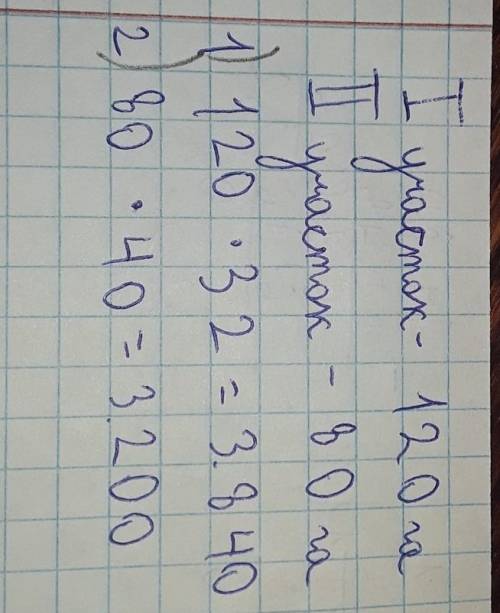 I участок - 120 га
II участок - 80 га
1) 120 · 32 = 3.840
2) 80 · 40 = 3.200